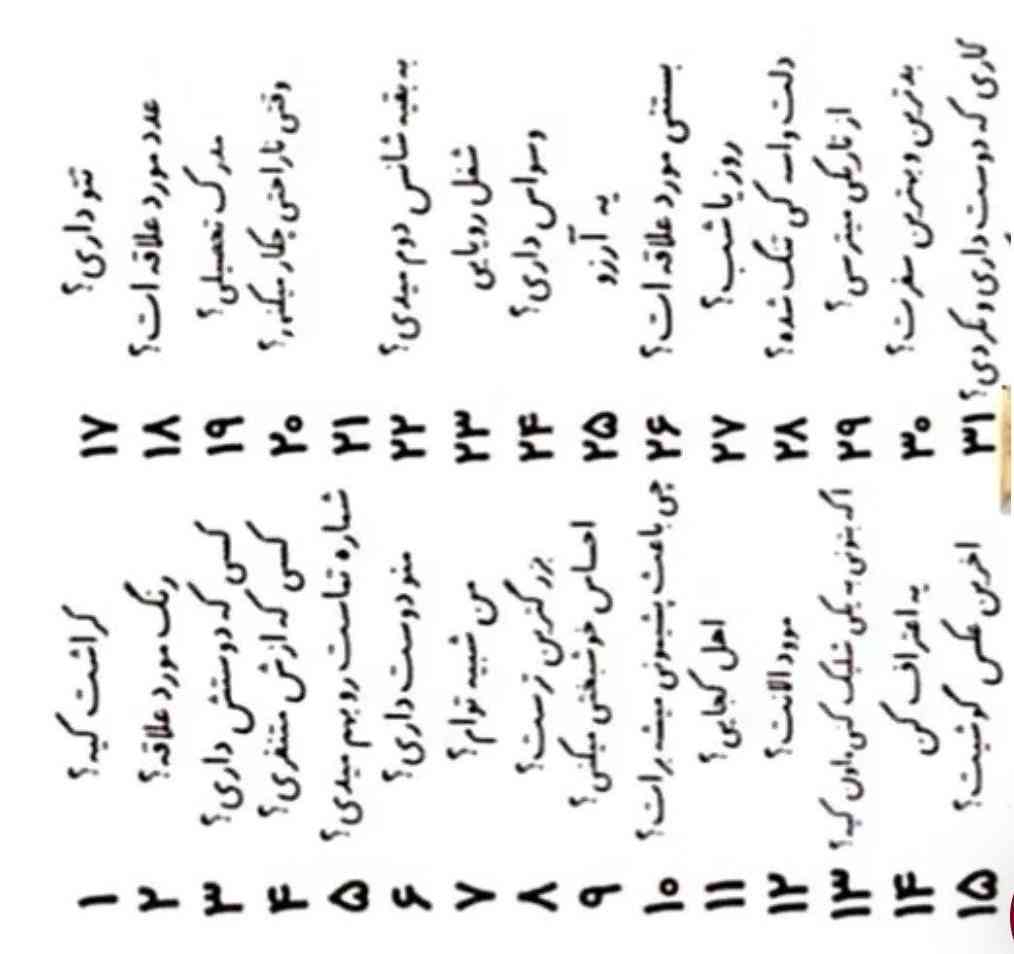 ۱ کراشت کیه؟
۲ رنگ مورد علاقه؟
۳ کسی که دوستش داری؟
۴ کسی که ازش متنفری؟
۵ شماره تماست رو بهم میدی؟
۶ منو دوست داری؟
۷ من شبیه توام؟
۸ بزرگترین ترست؟
۹ احساس خوشبختی میکنی؟
۱۰ چی باعث پشیمونی میشه برات؟
۱۱ اهل کجایی؟
۱۲ مود الانت؟
۱۳ اگه بتونی به یکی شلیک کنی،اون کیه؟
۱۴ یه اعتراف کن
۱۵ اخرین عکس گوشیت؟
۱۷ تتو داری؟
۱۸ عدد مورد علاقه ات؟
۱۹ مدرک تحصیلی؟
۲۰ وقتی ناراحتی چکار میکنی؟
۲۱
۲۲ به بقیه شانس دوم میدی؟
۲۳ شغل رویایی
۲۴ وسواس داری؟
۲۵ یه آرزو
۲۶ بستنی مورد علاقه ات؟
۲۷ روز یا شب؟
۲۸ دلت واسه کی تنگ شده؟
۲۹ از تاریکی میترسی؟
۳۰ بدترین و بهترین سفرت؟
۳۱ کاری که دوست داری و نکردی؟